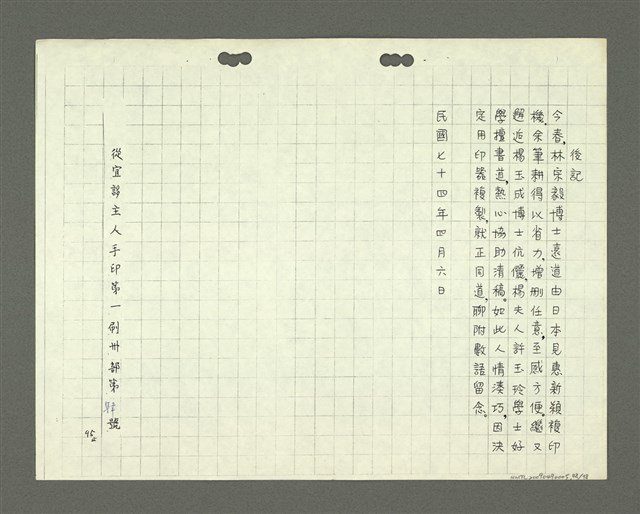 後記
今春,林宗毅博士遠道由日本見惠新穎複印
機,余筆耕得以省力,增刪任意,至感方便。繼又
邂逅楊玉成博士伉儷,楊夫人許玉玲學士好
學擅書道,熱心協助清稿。如此人情湊巧,因決
定用印器複製,就正同道,聊附數語留念。
民國七十四年四月六日
從宜諺主人手印第一刷卅部第 號